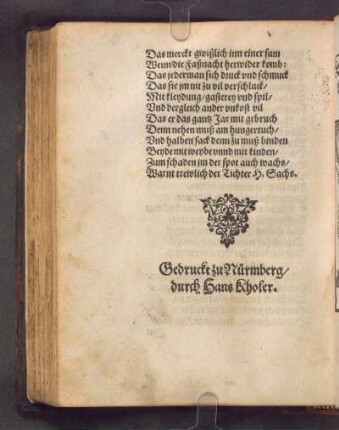 Das merckt gwißlich inn einer sum
Wenn die Faßnacht herwider komb:
Das jederman sich druck vnd schmuck
Das sie jm nit zu vil verschluck/
Mit kleydung/ gasterey vnd spil/
Vnd dergleich ander vnkost vil
Das er das gantz Jar mit gebruch
Denn nehen muß am hungertuch/
Vnd halben sack denn zu muß binden
Beyde mit weybe vnnd mit kinden/
Zum schaden jm der spot auch wachs/
Warnt trewlich der Tichter H. Sachs.
Gedruckt zu Nürmberg/
durch Hans Kholer.